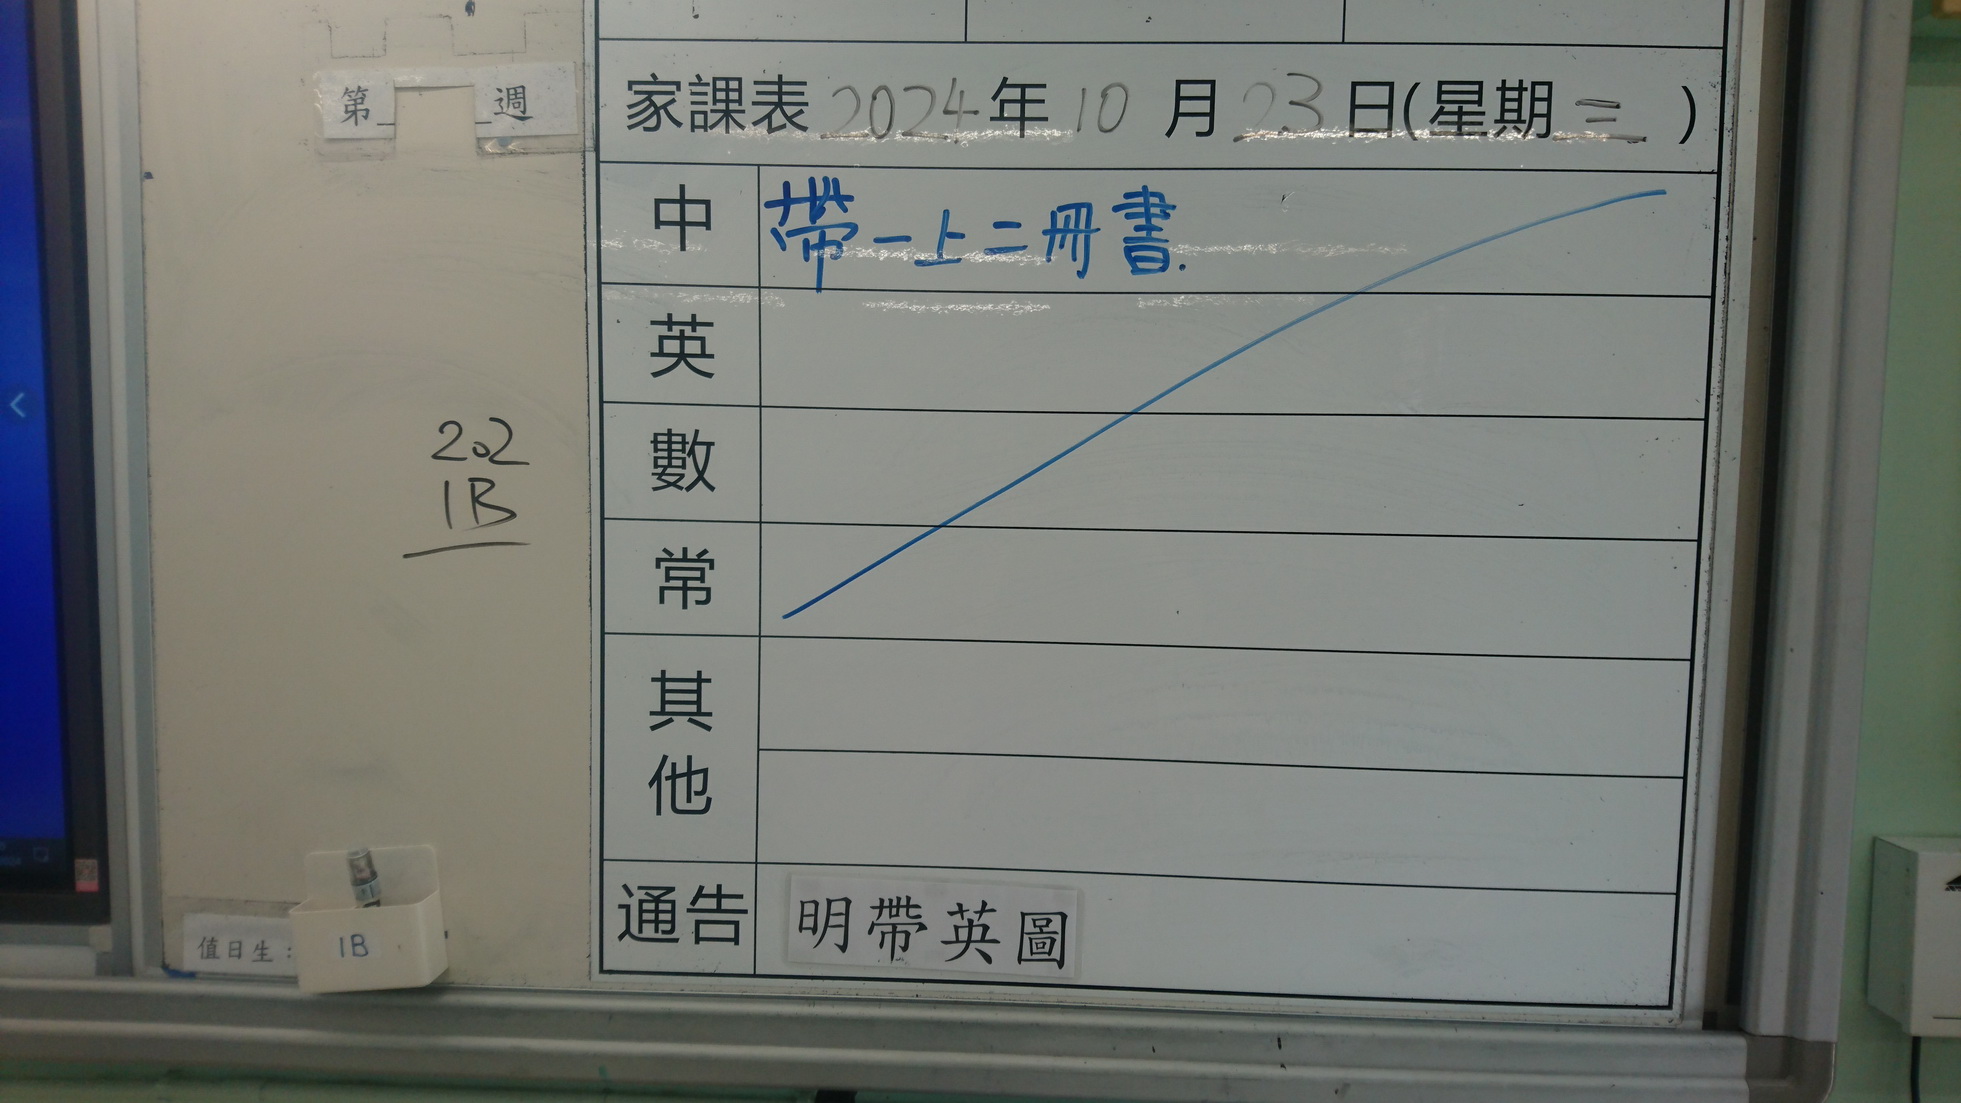 第__週
家課表 2024年10月23日(星期三)
中 帶一上二冊書.
英
數
常
其他
通告 明帶英圖
202
1B
值日生: 1B